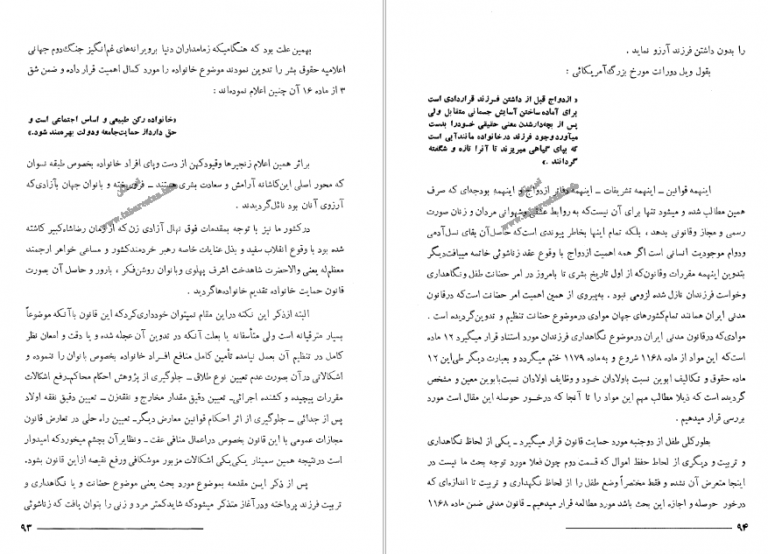 بهمین علت بود که هنگامیکه زمامداران دنیا بر ویرانه‌های غم‌انگیز جنگ‌دوم جهانی
اعلامیه حقوق بشر را تدوین نمودند موضوع خانواده را مورد کمال اهمیت قرار داده و ضمن شق
۳ از ماده ۱۶ آن چنین اعلام نموده‌اند :
«خانواده رکن طبیعی و اساس اجتماعی است و
حق دارد از حمایت جامعه و دولت بهره‌مند شود.»
براثر همین اعلام زنجیرها وقیود کهن از دست وپای افراد خانواده بخصوص طبقه نسوان
که محور اصلی این‌کاشانه آرامش و سعادت بشری هستند ــ فرو ریخته و بانوان جهان بآزادی‌که
آرزوی آنان بود نائل گردیدند .
در کشور ما نیز با توجه بمقدمات فوق نهال آزادی زن که از زمان رضاشاه کبیر کاشته
شده بود با وقوع انقلاب سفید و بذل عنایات خاصه رهبر خردمند کشور و مساعی خواهر ارجمند
معظم‌له یعنی والاحضرت شاهدخت اشرف پهلوی وبانوان روشن‌فکر ، بارور و حاصل آن بصورت
قانون حمایت خانواده تقدیم خانواده‌ها گردید .
البته از ذکر این نکته دراین مقام نمیتوان خودداری کرد که این قانون با آنکه موضوعاً
بسیار مترقیانه است ولی متأسفانه یا بعلت آنکه در تدوین آن عجله شده و یا دقت و امعان نظر
کامل در تنظیم آن بعمل نیامده تأمین کامل منافع افراد خانواده بخصوص بانوان را ننموده و
اشکالاتی در آن بصورت عدم تعیین نوع طلاق ــ جلوگیری از پژوهش احکام محاکم‌ رفع اشکالات
مقررات پیچیده و کشنده اجرائی ــ تعیین دقیق مقدار مخارج و نفقه زن ــ تعیین دقیق نفقه اولاد
پس از جدائی ــ جلوگیری از اثر احکام قوانین معارض دیگر ــ تعیین راه حلی در تعارض قانون
مجازات عمومی با این قانون بخصوص دراعمال منافی عفت ــ ونظایر آن بچشم میخورد که امیدوار
است درنتیجه همین سمینار یکی یکی اشکالات مزبور موشکافی ورفع نقیصه از این قانون بشود.
پس از ذکر این مقدمه بموضوع مورد بحث یعنی موضوع حضانت و یا نگاهداری و
تربیت فرزند پرداخته ودرآغاز متذکر میشود که شاید کمتر مرد و زنی را بتوان یافت که زناشوئی
۹۳
را بدون داشتن فرزند آرزو نماید .
بقول ویل دورانت مورخ بزرگ آمریکائی :
« ازدواج قبل از داشتن فرزند قراردادی است
برای آماده ساختن آسایش جسمانی متقابل ولی
پس از بچه‌دارشدن معنی حقیقی خود را بدست
میآورد وجود فرزند در خانواده مانند آبی است
که بپای گیاهی میریزند تا آنرا تازه و شگفته
گردانند .»
اینهمه قوانین ــ اینهمه تشریفات ــ اینهمه دفاتر ازدواج و اینهمه بودجه‌ای که صرف
همین مطالب شده و میشود تنها برای آن نیست‌که به روابط عشقی وشهوانی مردان و زنان صورت
رسمی و مجاز وقانونی بدهد ، بلکه تمام اینها بخاطر پیوندی است‌که حاصل آن بقای نسل آدمی
ودوام موجودیت انسانی است اگر همه اهمیت ازدواج با وقوع عقد زناشوئی خاتمه مییافت دیگر
بتدوین اینهمه مقررات وقانون‌که از اول تاریخ بشری تا بامروز در امر حضانت طفل ونگاهداری
وخواست فرزندان نازل شده لزومی نبود . به‌پیروی از همین اهمیت امر حضانت است که درقانون
مدنی ایران همانند تمام کشورهای جهان موادی در موضوع حضانت تنظیم و تدوین گردیده است .
موادی‌که در قانون مدنی ایران در موضوع نگاهداری فرزندان مورد استناد قرار میگیرد ۱۲ ماده
است‌که این مواد از ماده ۱۱۶۸ شروع و به ماده ۱۱۷۹ ختم میگردد و بعبارت دیگر طی این ۱۲
ماده حقوق و تکالیف ابوین نسبت باولادان خود و وظایف اولادان نسبت بابوین معین و مشخص
گردیده است که ذیلا مطالب مهم این مواد را تا آنجا که درخور حوصله این مقال است مورد
بررسی قرار میدهیم .
بطورکلی طفل از دوجنبه مورد حمایت قانون قرار میگیرد ــ یکی از لحاظ نگاهداری
و تربیت و دیگری از لحاظ حفظ اموال که قسمت دوم چون فعلا مورد توجه بحث ما نیست در
اینجا متعرض آن نشده و فقط مختصراً وضع طفل را از لحاظ نگهداری و تربیت تا اندازه‌ای که
درخور حوصله و اجازه این بحث باشد مورد مطالعه قرار میدهیم ــ قانون مدنی ضمن ماده ۱۱۶۸
۹۴